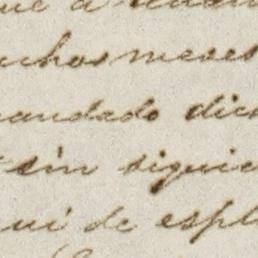 ue a
uchos meses
andado dic
sin siguie
uí de espl